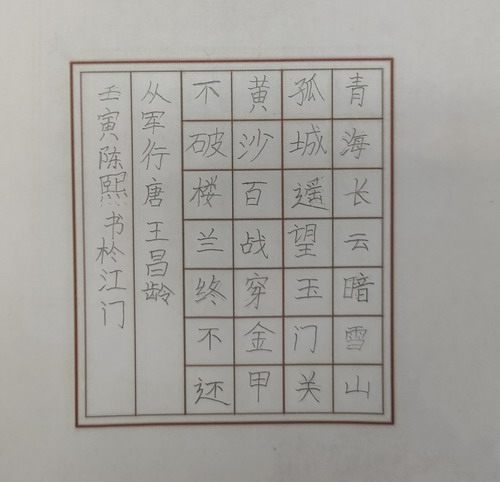 青海长云暗雪山
孤城遥望玉门关
黄沙百战穿金甲
不破楼兰终不还
从军行唐王昌龄
壬寅陈熙书於江门